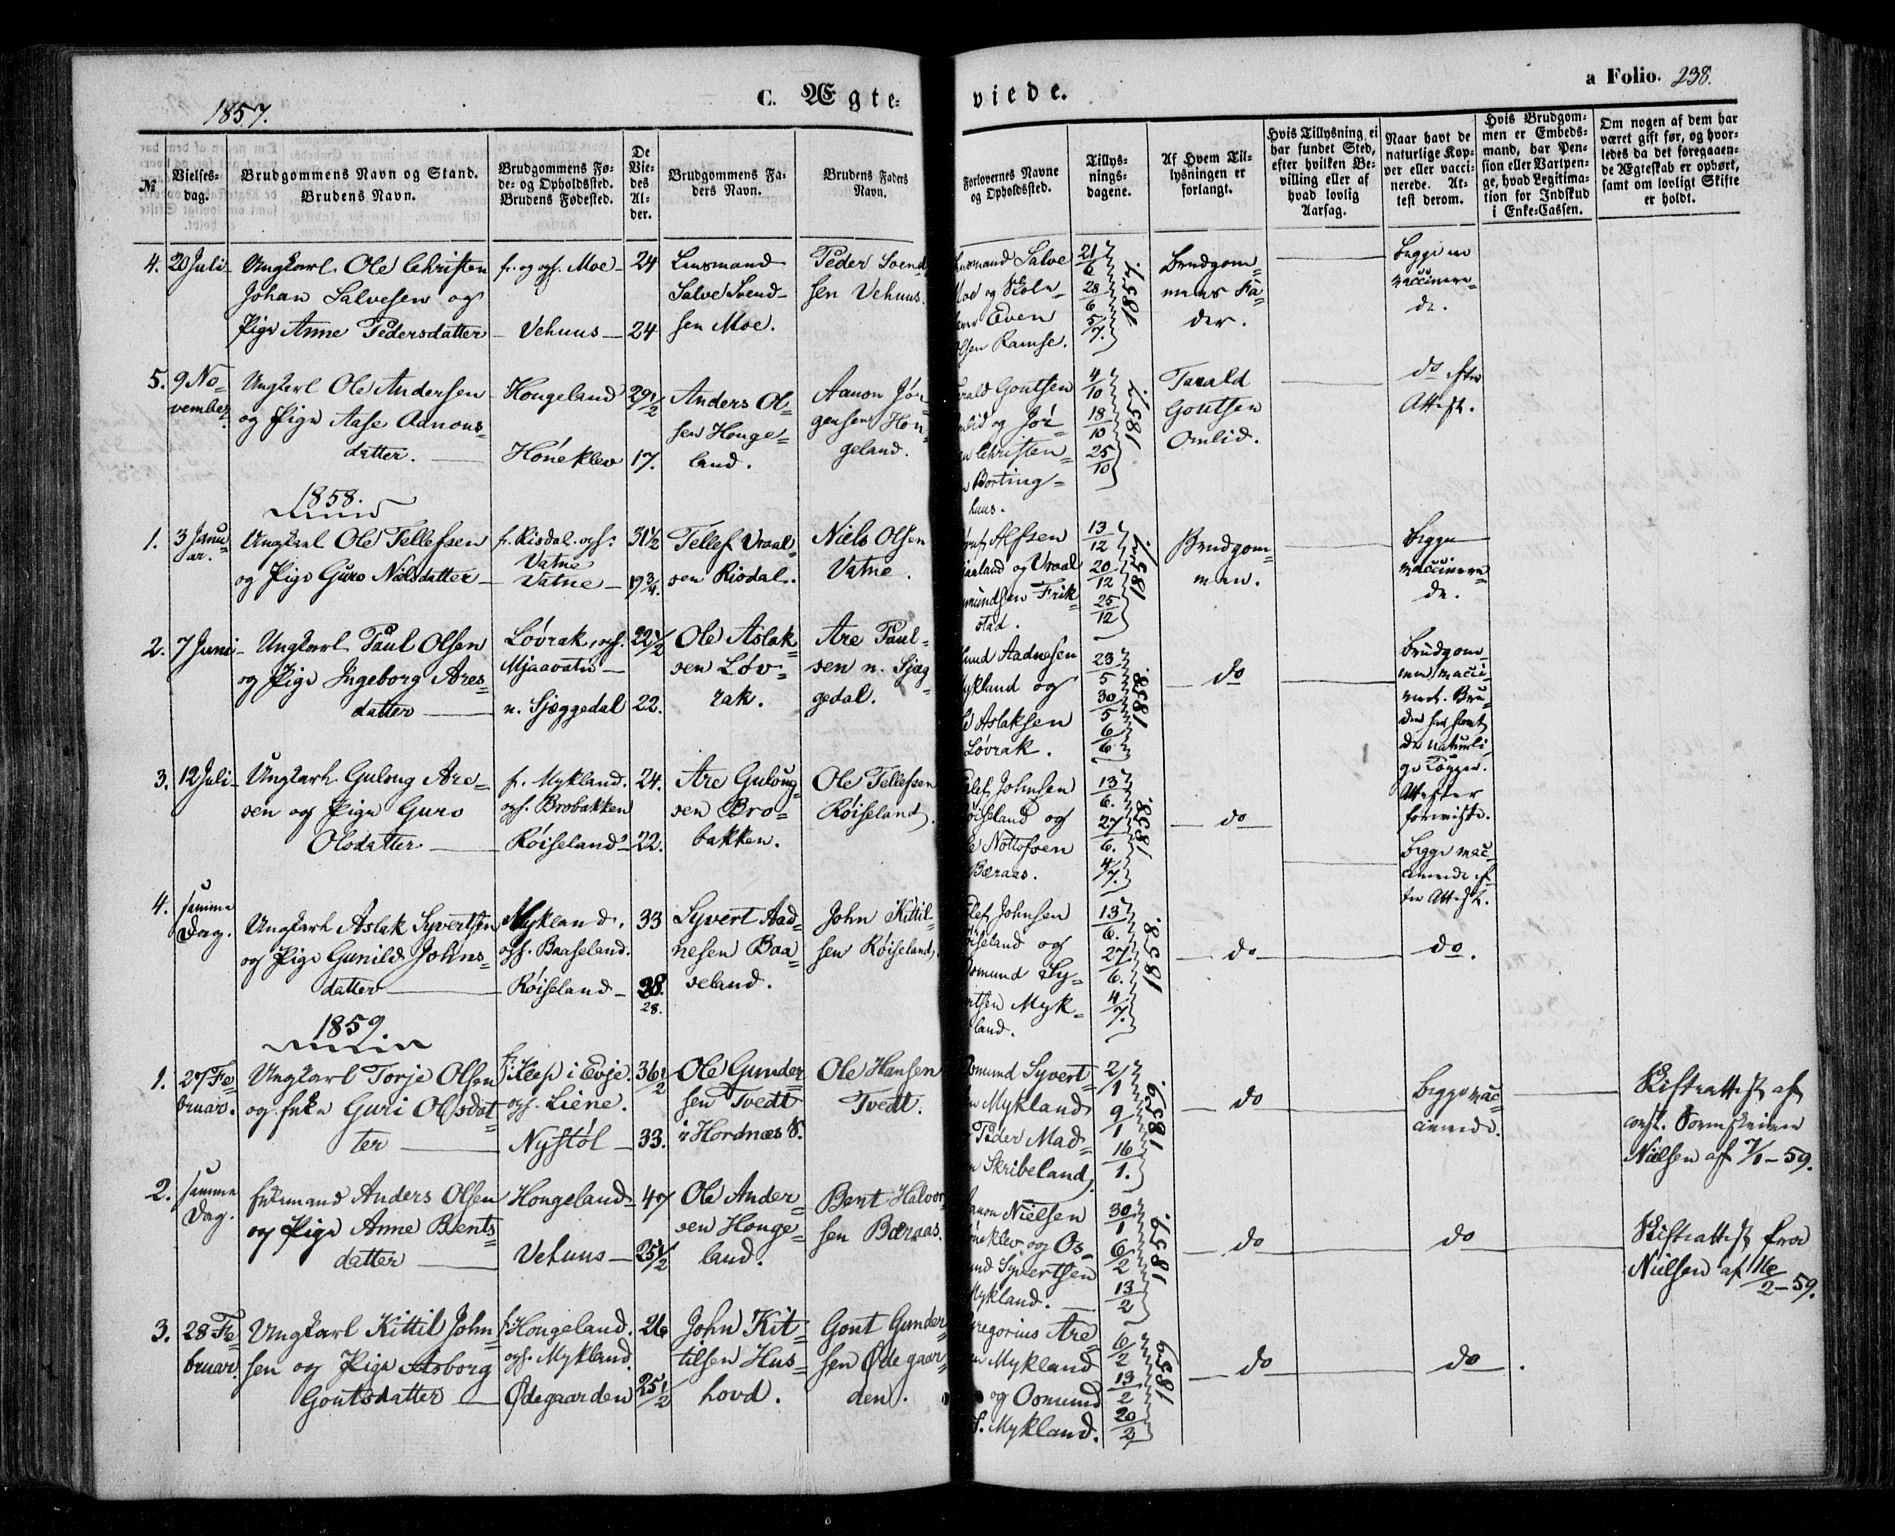 1857.
C. Ægte-
viede.
a Folio. 238.
№
Vielses-
dag.
Brudgommens Navn og Stand.
Brudens Navn.
Brudgommens Fø-
de- og Opholdssted.
Brudens Fødested.
De
Vie-
des
Al-
der.
Brudgommens Fa-
ders Navn.
Brudens Faders
Navn.
Forlovernes Navne
og Opholdssted.
Tillys-
nings-
dagene.
Af Hvem Til-
lysningen er
forlangt.
Hvis Tillysning ei
har fundet Sted,
efter hvilken Be-
villing eller af
hvad lovlig
Aarsag.
Naar havt de
naturlige Kop-
per eller vacci-
nerede. At-
test derom.
Hvis Brudgom-
men er Embeds-
mand, har Pen-
sion eller Vartpen-
ge, hvad Legitima-
tion for Indskud
i Enke-Cassen.
Om nogen af dem har
været gift før, og hvor-
ledes da det foregaaen-
de Ægteskab er ophørt,
samt om lovligt Skifte
er holdt.
4. 20 Juli
Ungkarl Ole Christen
Johan Salvesen og
Pige Anne Pedersdatter
f. og opf. Moe
Vehuus
24
24
Lensmand
Salve Svend-
sen Moe.
Peder Svend-
sen Vehuus.
Salve
Moe og
Even
Ramse.
21/6
28/6
5/7.
1857.
Brudgom-
mens Fa-
der.
Begge
vaccinere-
de.
5. 9 No-
vember.
Ungkarl Ole Andersen
og Pige Aase Aanons-
datter.
Hongeland
Høneklev
29 1/2
17.
Anders Ol-
sen Honge-
land.
Aanon Jør-
gensen Hon-
geland.
Goutsen
og Jør-
Christen-
Borting-
huus.
4/10
18/10
25/10
1857.
Tarald
Goutsen
Omlid.
do efter
Attest.
1858.
1. 3 Janu-
ar.
Ungkarl Ole Tellefsen
og Pige Guro Nielsdatter
f. Risdal. opf.
Vatne
Vatne
31 1/2
19 3/4.
Tellef Vraal-
sen Risdal.
Niels Olsen
Vatne.
Alfsen
og Vraal
Frik-
stad.
13/12
20/12
25/12
1857.
Brudgom-
men.
Begge
vaccinere-
de.
2. 7 Juni
Ungkarl Paul Olsen
og Pige Ingeborg Ares-
datter
Løvrak, opf.
Mjaavatn
n. Sjæggedal
22 1/2
22.
Ole Aslak-
sen Løv-
rak.
Are Paul-
sen n. Sjæg-
gedal.
Aadnesen
Mykland og
Aslaksen
Løvrak.
23/5
30/5
6/6.
1858.
do
Brudgom-
men vacci-
neret. Bru-
den har havt
de naturli-
ge Kopper.
Attester
foreviste.
3. 12 Juli
Ungkarl Gulong Are-
sen og Pige Guro
Olsdatter
f. Mykland.
opf. Brobakken
Røiseland
24.
22.
Are Gulong-
sen Bro-
bakken.
Ole Tellefsen
Røiseland.
Johnsen
Røiseland og
Nottofsen
Bæraas.
13/6.
27/6.
4/7.
1858.
do
Begge vac-
cinerede ef-
ter Attest.
4. samme
Dag.
Ungkarl Aslak Syvertsen
og Pige Gunild Johns-
datter
Mykland.
opf. Baaseland.
Røiseland
33
28.
28.
Syvert Aad-
nesen Baa-
seland.
John Kittil-
sen Røiseland.
Johnsen
Røiseland og
Osmund Sy-
Myk-
land.
13/6.
27/6.
4/7.
1858.
do
do.
1859.
1. 27 Fe-
bruar.
Ungkarl Torje Olsen
og Enke Guri Olsdat-
ter
f. i Evje.
opf. Liene.
Nystøl
36 1/2
33.
Ole Gunder-
sen Tvedt
i Hordnæs S.
Ole Hansen
Tvedt.
Osmund Syvert-
Mykland
Peder Mad-
Skribeland.
2/1
9/1
16/1.
1859.
do
Begge vac-
cinerede.
Skifteattest af
const. Sorenskriver
Nielsen af 7/1-59.
2. samme
Dag.
Enkemand Anders Olsen
og Pige Anne Bents-
datter
Hongeland
Vehuus
47
25 1/2
Ole Ander-
sen Honge-
land.
Bent Halvor-
sen Bæraas.
Aanon Nielsen
Høneklev og Os-
mund Syvertsen
Mykland.
30/1
6/2
13/2
1859.
do
do
Skifteattest fra
Nielsen af 16/2-59.
3. 28 Fe-
bruar.
Ungkarl Kittil John-
sen og Pige Asborg
Goutsdatter
f. Hongeland.
opf. Mykland.
Ødegaarden
26
25 1/2
John Kit-
tilsen Hus-
hovd.
Gout Gunder-
sen Ødegaar-
den.
Gregorius Are-
Mykland
og Osmund
S. Mykland.
6/2
13/2
20/2
1859.
do
do